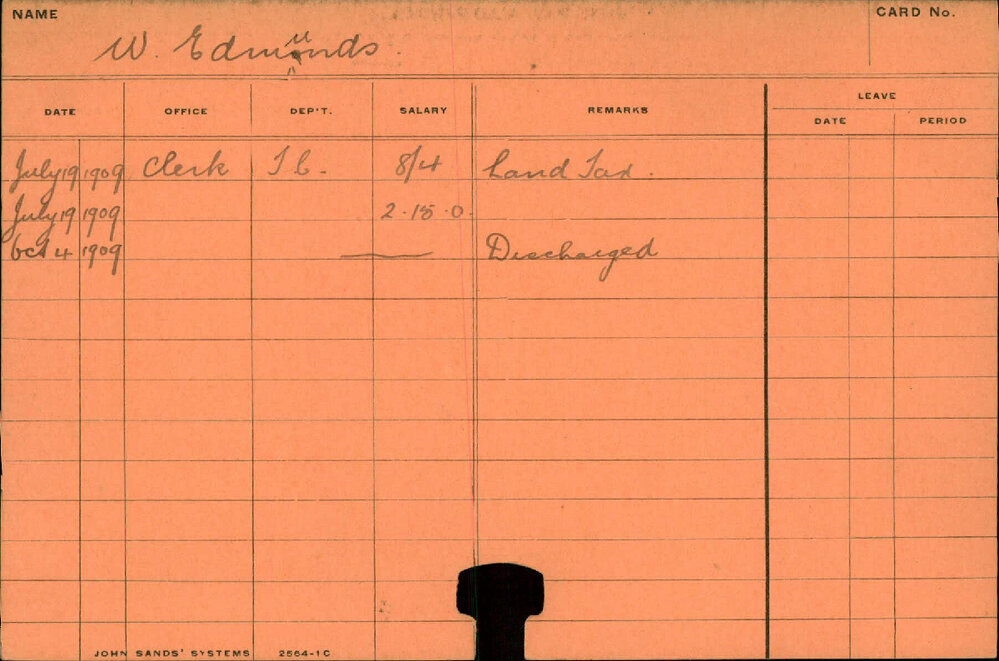 NAME
CARD No.
W. Edmunds.
DATE OFFICE DEP'T. SALARY REMARKS LEAVE
DATE PERIOD
July 19 1909 Clerk T C. 8/4 Land Tax.
July 19 1909 2.15.0.
Oct 4 1909 — Discharged
JOHN SANDS' SYSTEMS 2564-1C